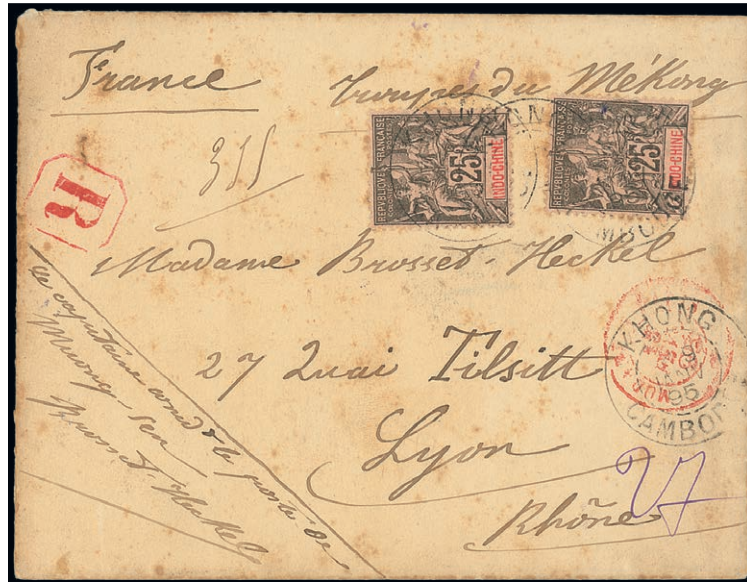 France
Troupes du Mékong
315
R
REPUBLIQUE FRANÇAISE
COLONIES
25
INDO-CHINE
REPUBLIQUE FRANÇAISE
25
INDO-CHINE
Madame Brosset-Heckel
27 Quai Tilsitt
Lyon
Rhône
KHONG
JANV
95
CAMBO
27
Le capitaine comdt le poste de
Muong Sen
Brosset-Heckel